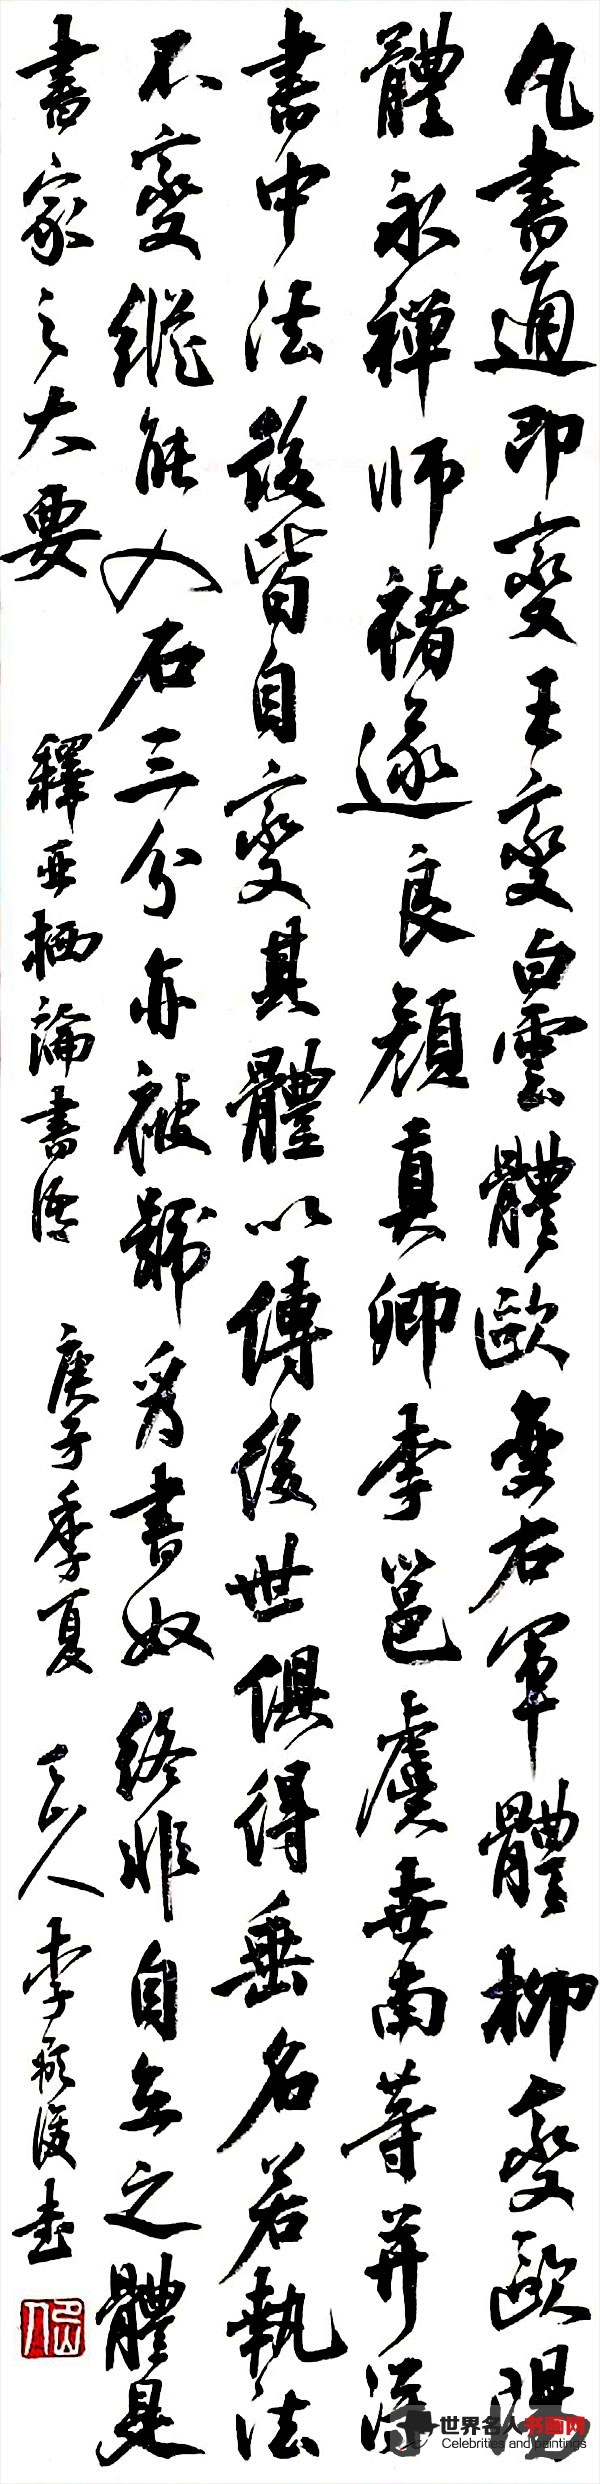 凡書通即變王變白雲體歐變右軍體柳變歐陽
體永禪師褚遂良顏真卿李邕虞世南等并得
書中法後皆自變其體以傳後世俱得垂名若執法
不變縱能入石三分亦被號爲書奴終非自立之體是
書家之大要 釋亞栖論書語 庚子季夏 山人李書
世界名人书画网
Celebrities and paintings